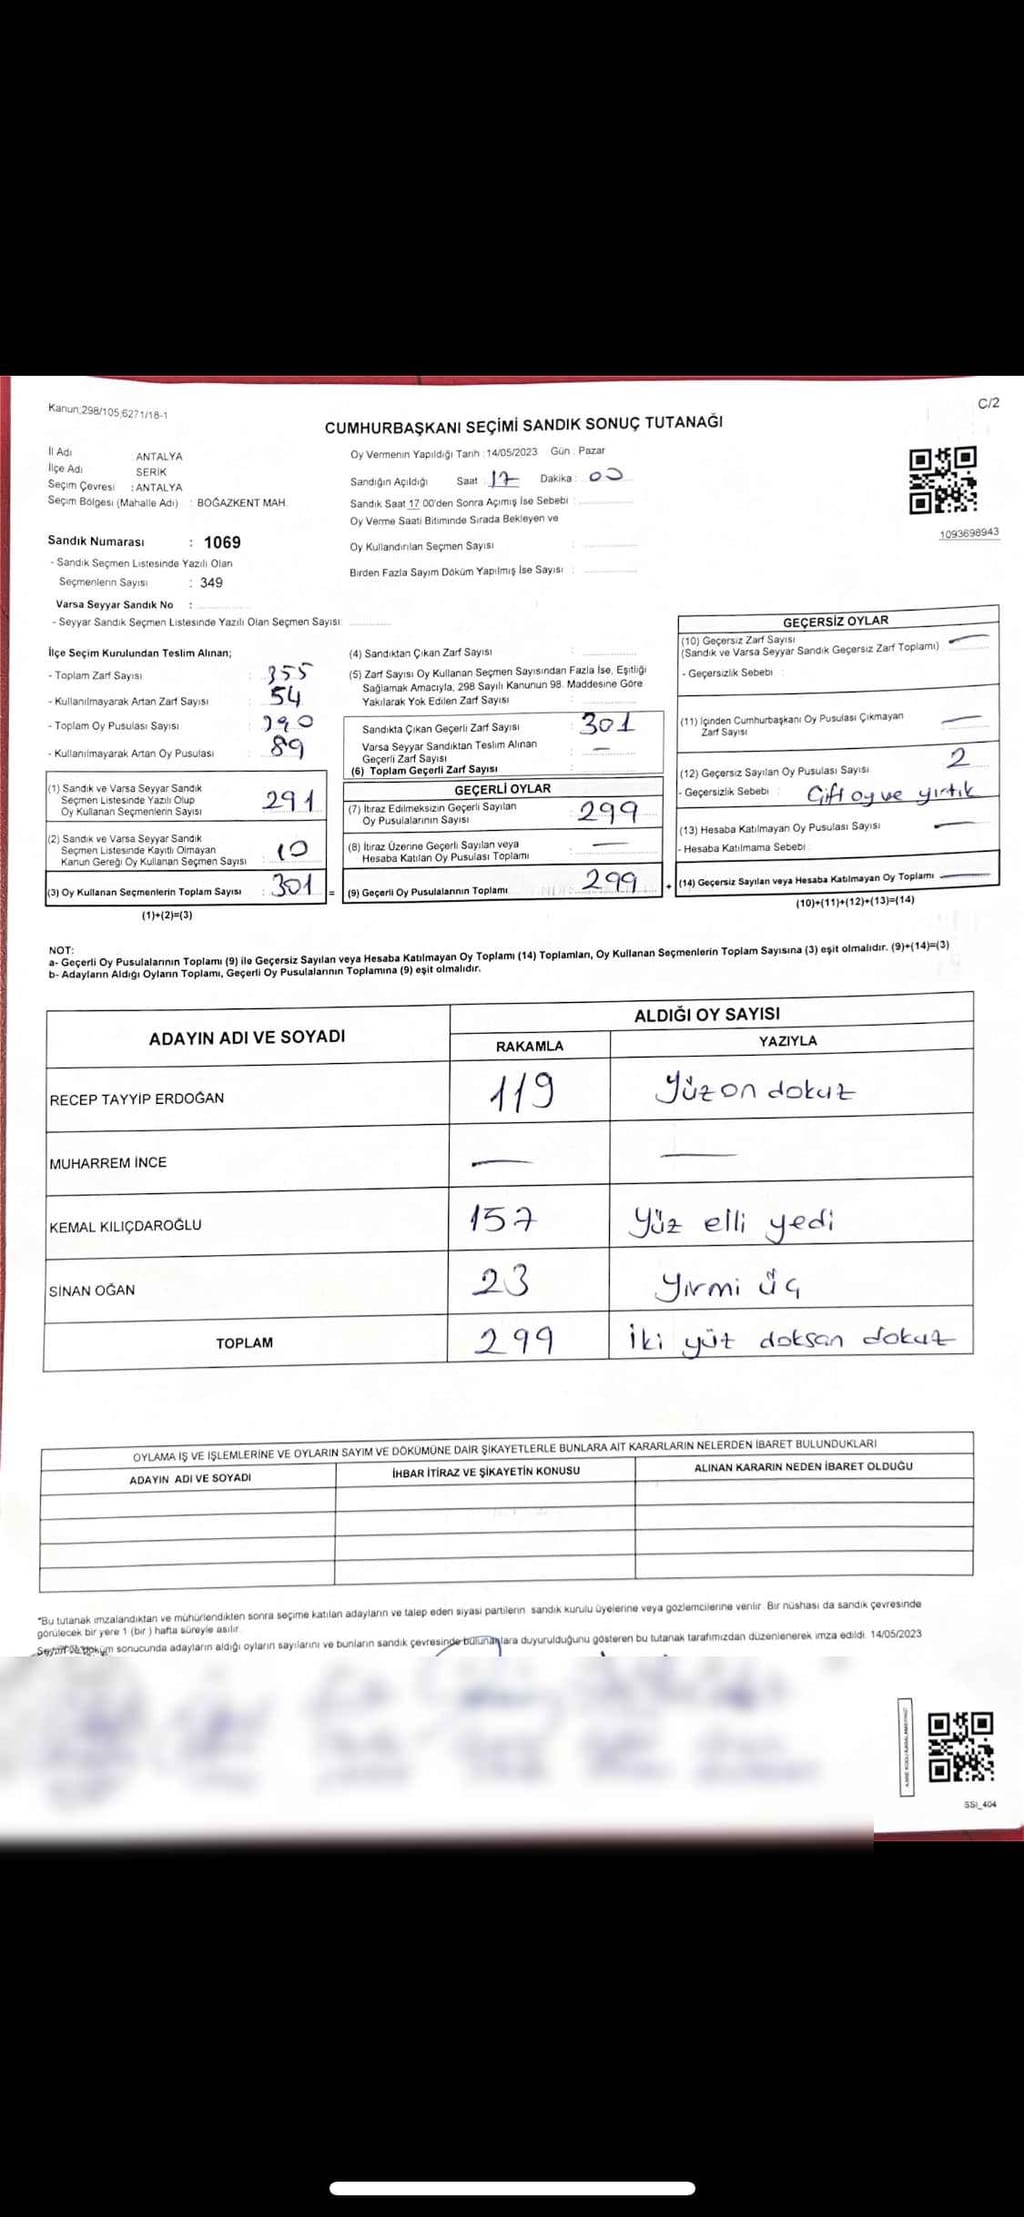 Kanun;298/105,6271/18-1
C/2
CUMHURBAŞKANI SEÇİMİ SANDIK SONUÇ TUTANAĞI
İl Adı ANTALYA
İlçe Adı SERİK
Seçim Çevresi : ANTALYA
Seçim Bölgesi (Mahalle Adı) : BOĞAZKENT MAH.
Oy Vermenin Yapıldığı Tarih : 14/05/2023 Gün : Pazar
Sandığın Açıldığı Saat 17 Dakika : 00
Sandık Saat 17 00'den Sonra Açımış İse Sebebi :
Oy Verme Saati Bitiminde Sırada Bekleyen ve
Oy Kullandırılan Seçmen Sayısı :
Birden Fazla Sayım Döküm Yapılmış İse Sayısı :
1093698943
Sandık Numarası : 1069
- Sandık Seçmen Listesinde Yazılı Olan
Seçmenlerin Sayısı : 349
Varsa Seyyar Sandık No :
- Seyyar Sandık Seçmen Listesinde Yazılı Olan Seçmen Sayısı:
İlçe Seçim Kurulundan Teslim Alınan;
- Toplam Zarf Sayısı : 355
- Kullanılmayarak Artan Zarf Sayısı : 54
- Toplam Oy Pusulası Sayısı : 390
- Kullanılmayarak Artan Oy Pusulası : 89
(1) Sandık ve Varsa Seyyar Sandık
Seçmen Listesinde Yazılı Olup
Oy Kullanan Seçmenlerin Sayısı : 291
(2) Sandık ve Varsa Seyyar Sandık
Seçmen Listesinde Kayıtlı Olmayan
Kanun Gereği Oy Kullanan Seçmen Sayısı : 10
(3) Oy Kullanan Seçmenlerin Toplam Sayısı : 301 =
(1)+(2)=(3)
(4) Sandıktan Çıkan Zarf Sayısı :
(5) Zarf Sayısı Oy Kullanan Seçmen Sayısından Fazla İse, Eşitliği
Sağlamak Amacıyla, 298 Sayılı Kanunun 98. Maddesine Göre
Yakılarak Yok Edilen Zarf Sayısı :
Sandıkta Çıkan Geçerli Zarf Sayısı : 301
Varsa Seyyar Sandıktan Teslim Alınan
Geçerli Zarf Sayısı : —
(6) Toplam Geçerli Zarf Sayısı :
GEÇERLİ OYLAR
(7) İtiraz Edilmeksizin Geçerli Sayılan
Oy Pusulalarının Sayısı : 299
(8) İtiraz Üzerine Geçerli Sayılan veya
Hesaba Katılan Oy Pusulası Toplamı : —
(9) Geçerli Oy Pusulalarının Toplamı 299 +
GEÇERSİZ OYLAR
(10) Geçersiz Zarf Sayısı —
(Sandık ve Varsa Seyyar Sandık Geçersiz Zarf Toplamı)
- Geçersizlik Sebebi :
(11) İçinden Cumhurbaşkanı Oy Pusulası Çıkmayan
Zarf Sayısı —
(12) Geçersiz Sayılan Oy Pusulası Sayısı 2
- Geçersizlik Sebebi : Çift oy ve yırtık
(13) Hesaba Katılmayan Oy Pusulası Sayısı —
- Hesaba Katılmama Sebebi
(14) Geçersiz Sayılan veya Hesaba Katılmayan Oy Toplamı —
(10)+(11)+(12)+(13)=(14)
NOT:
a- Geçerli Oy Pusulalarının Toplamı (9) ile Geçersiz Sayılan veya Hesaba Katılmayan Oy Toplamı (14) Toplamları, Oy Kullanan Seçmenlerin Toplam Sayısına (3) eşit olmalıdır. (9)+(14)=(3)
b- Adayların Aldığı Oyların Toplamı, Geçerli Oy Pusulalarının Toplamına (9) eşit olmalıdır.
ADAYIN ADI VE SOYADI
ALDIĞI OY SAYISI
RAKAMLA YAZIYLA
RECEP TAYYİP ERDOĞAN 119 Yüz on dokuz
MUHARREM İNCE — —
KEMAL KILIÇDAROĞLU 157 Yüz elli yedi
SİNAN OĞAN 23 Yirmi üç
TOPLAM 299 İki yüz doksan dokuz
OYLAMA İŞ VE İŞLEMLERİNE VE OYLARIN SAYIM VE DÖKÜMÜNE DAİR ŞİKAYETLERLE BUNLARA AİT KARARLARIN NELERDEN İBARET BULUNDUKLARI
ADAYIN ADI VE SOYADI İHBAR İTİRAZ VE ŞİKAYETİN KONUSU ALINAN KARARIN NEDEN İBARET OLDUĞU
*Bu tutanak imzalandıktan ve mühürlendikten sonra seçime katılan adayların ve talep eden siyasi partilerin sandık kurulu üyelerine veya gözlemcilerine verilir. Bir nüshası da sandık çevresinde
görülecek bir yere 1 (bir ) hafta süreyle asılır.
Sayım ve döküm sonucunda adayların aldığı oyların sayılarını ve bunların sandık çevresinde bulunanlara duyurulduğunu gösteren bu tutanak tarafımızdan düzenlenerek imza edildi. 14/05/2023
SSI_404